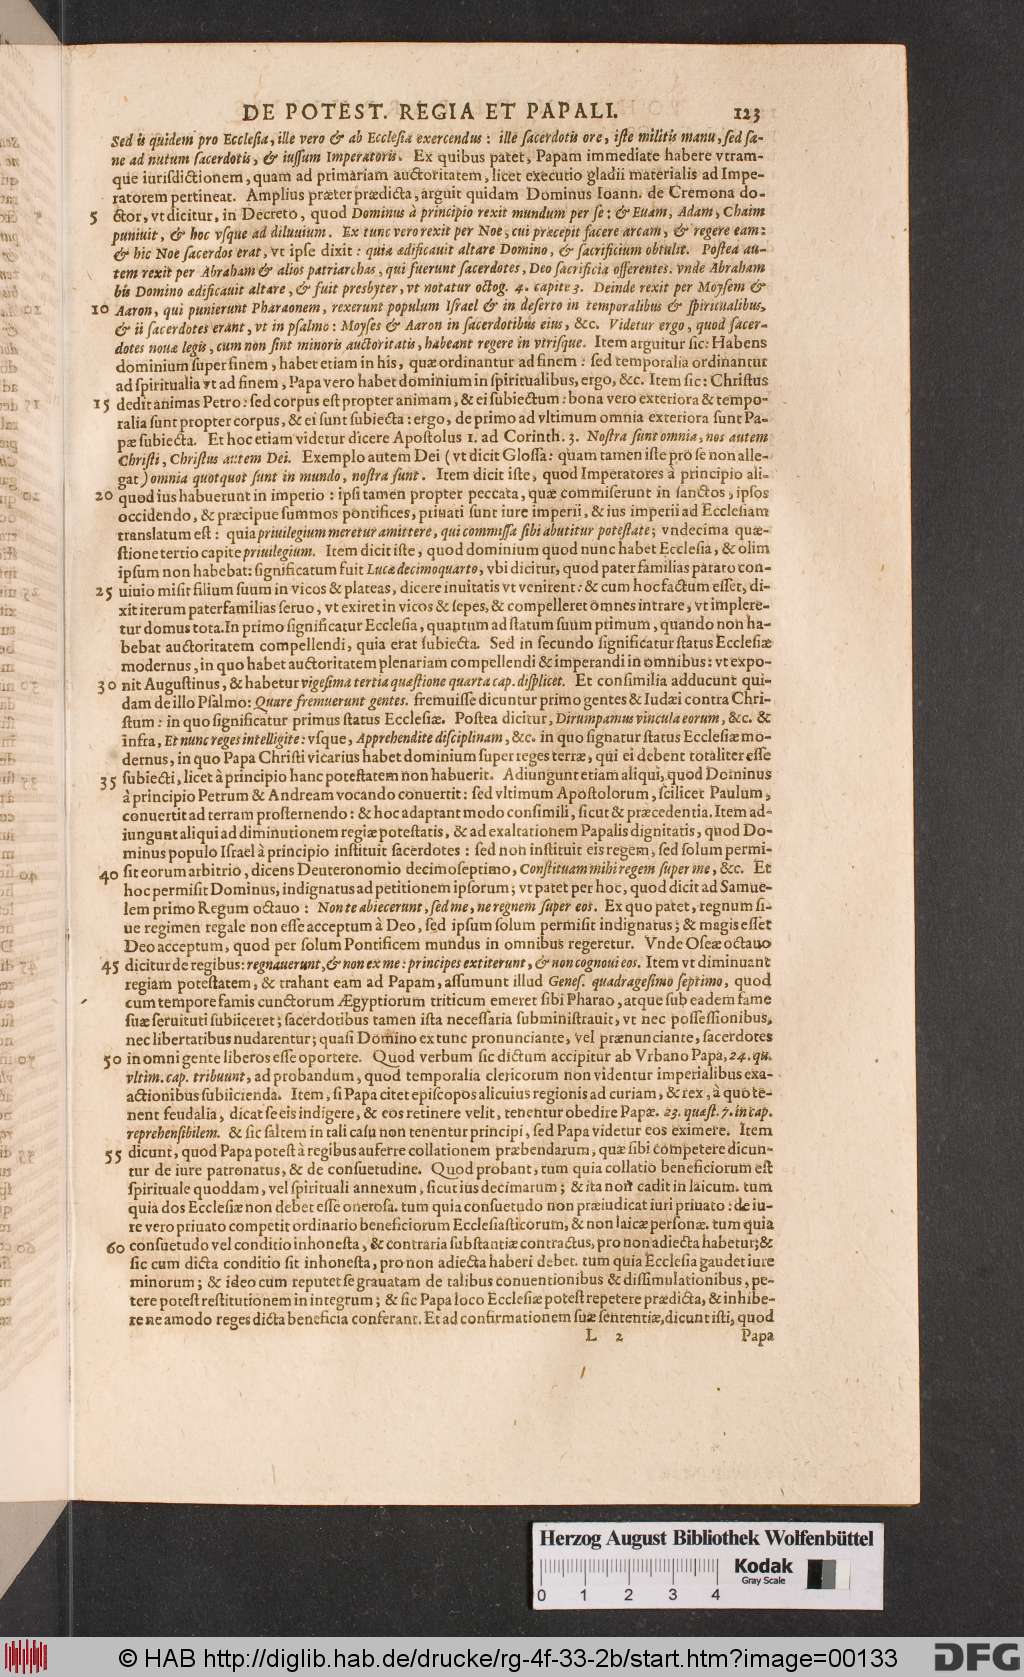 DE POTEST. REGIA ET PAPALI. 123
Sed is quidem pro Ecclesia, ille vero & ab Ecclesia exercendus: ille sacerdotis ore, iste militis manu, sed sa-
ne ad nutum sacerdotis, & iussum Imperatoris. Ex quibus patet, Papam immediate habere vtram-
que iurisdictionem, quam ad primariam auctoritatem, licet executio gladii materialis ad Impe-
ratorem pertineat. Amplius præter prædicta, arguit quidam Dominus Ioann. de Cremona do-
5 ctor, vt dicitur, in Decreto, quod Dominus à principio rexit mundum per se: & Euam, Adam, Chaim
puniuit, & hoc vsque ad diluuium. Ex tunc vero rexit per Noe, cui præcepit facere arcam, & regere eam:
& hic Noe sacerdos erat, vt ipse dixit: quia ædificauit altare Domino, & sacrificium obtulit. Postea au-
tem rexit per Abraham & alios patriarchas, qui fuerunt sacerdotes, Deo sacrificia offerentes. vnde Abraham
bis Domino ædificauit altare, & fuit presbyter, vt notatur octog. 4. capite 3. Deinde rexit per Moysem &
10 Aaron, qui punierunt Pharaonem, rexerunt populum Israel & in deserto in temporalibus & spiritualibus,
& ii sacerdotes erant, vt in psalmo: Moyses & Aaron in sacerdotibus eius, &c. Videtur ergo, quod sacer-
dotes nouæ legis, cum non sint minoris auctoritatis, habeant regere in vtrisque. Item arguitur sic: Habens
dominium super finem, habet etiam in his, quæ ordinantur ad finem: sed temporalia ordinantur
ad spiritualia vt ad finem, Papa vero habet dominium in spiritualibus, ergo, &c. Item sic: Christus
15 dedit animas Petro: sed corpus est propter animam, & ei subiectum: bona vero exteriora & tempo-
ralia sunt propter corpus, & ei sunt subiecta: ergo, de primo ad vltimum omnia exteriora sunt Pa-
pæ subiecta. Et hoc etiam videtur dicere Apostolus 1. ad Corinth. 3. Nostra sunt omnia, nos autem
Christi, Christus autem Dei. Exemplo autem Dei (vt dicit Glossa: quam tamen iste pro se non alle-
gat) omnia quotquot sunt in mundo, nostra sunt. Item dicit iste, quod Imperatores à principio ali-
20 quod ius habuerunt in imperio: ipsi tamen propter peccata, quæ commiserunt in sanctos, ipsos
occidendo, & præcipue summos pontifices, priuati sunt iure imperii, & ius imperii ad Ecclesiam
translatum est: quia priuilegium meretur amittere, qui commissa sibi abutitur potestate; vndecima quæ-
stione tertio capite priuilegium. Item dicit iste, quod dominium quod nunc habet Ecclesia, & olim
ipsum non habebat: significatum fuit Lucæ decimoquarto, vbi dicitur, quod pater familias parato con-
25 uiuio misit filium suum in vicos & plateas, dicere inuitatis vt venirent: & cum hoc factum esset, di-
xit iterum paterfamilias seruo, vt exiret in vicos & sepes, & compelleret omnes intrare, vt implere-
tur domus tota. In primo significatur Ecclesia, quantum ad statum suum primum, quando non ha-
bebat auctoritatem compellendi, quia erat subiecta. Sed in secundo significatur status Ecclesiæ
modernus, in quo habet auctoritatem plenariam compellendi & imperandi in omnibus: vt expo-
30 nit Augustinus, & habetur vigesima tertia quæstione quarta cap. displicet. Et consimilia adducunt qui-
dam de illo Psalmo: Quare fremuerunt gentes. fremuisse dicuntur primo gentes & Iudæi contra Chri-
stum: in quo significatur primus status Ecclesiæ. Postea dicitur, Dirumpamus vincula eorum, &c. &
infra, Et nunc reges intelligite: vsque, Apprehendite disciplinam, &c. in quo signatur status Ecclesiæ mo-
dernus, in quo Papa Christi vicarius habet dominium super reges terræ, qui ei debent totaliter esse
35 subiecti, licet à principio hanc potestatem non habuerit. Adiungunt etiam aliqui, quod Dominus
à principio Petrum & Andream vocando conuertit: sed vltimum Apostolorum, scilicet Paulum,
conuertit ad terram prosternendo: & hoc adaptant modo consimili, sicut & præcedentia. Item ad-
iungunt aliqui ad diminutionem regiæ potestatis, & ad exaltationem Papalis dignitatis, quod Do-
minus populo Israel à principio instituit sacerdotes: sed non instituit eis regem, sed solum permi-
40 sit eorum arbitrio, dicens Deuteronomio decimoseptimo, Constituam mihi regem super me, &c. Et
hoc permisit Dominus, indignatus ad petitionem ipsorum; vt patet per hoc, quod dicit ad Samue-
lem primo Regum octauo: Non te abiecerunt, sed me, ne regnem super eos. Ex quo patet, regnum si-
ue regimen regale non esse acceptum à Deo, sed ipsum solum permisit indignatus; & magis esset
Deo acceptum, quod per solum Pontificem mundus in omnibus regeretur. Vnde Oseæ octauo
45 dicitur de regibus: regnauerunt, & non ex me: principes extiterunt, & non cognoui eos. Item vt diminuant
regiam potestatem, & trahant eam ad Papam, assumunt illud Genes. quadragesimo septimo, quod
cum tempore famis cunctorum Ægyptiorum triticum emeret sibi Pharao, atque sub eadem fame
suæ seruituti subiiceret; sacerdotibus tamen ista necessaria subministrauit, vt nec possessionibus,
nec libertatibus nudarentur; quasi Domino ex tunc pronunciante, vel prænunciante, sacerdotes
50 in omni gente liberos esse oportere. Quod verbum sic dictum accipitur ab Vrbano Papa, 24. qu.
vltim. cap. tribuunt, ad probandum, quod temporalia clericorum non videntur imperialibus exa-
actionibus subiicienda. Item, si Papa citet episcopos alicuius regionis ad curiam, & rex, à quo te-
nent feudalia, dicat se eis indigere, & eos retinere velit, tenentur obedire Papæ. 23. quæst. 7. in cap.
reprehensibilem. & sic saltem in tali casu non tenentur principi, sed Papa videtur eos eximere. Item
55 dicunt, quod Papa potest à regibus auferre collationem præbendarum, quæ sibi competere dicun-
tur de iure patronatus, & de consuetudine. Quod probant, tum quia collatio beneficiorum est
spirituale quoddam, vel spirituali annexum, sicut ius decimarum; & ita non cadit in laicum. tum
quia dos Ecclesiæ non debet esse onerosa. tum quia consuetudo non præiudicat iuri priuato: de iu-
re vero priuato competit ordinario beneficiorum Ecclesiasticorum, & non laicæ personæ. tum quia
60 consuetudo vel conditio inhonesta, & contraria substantiæ contractus, pro non adiecta habetur; &
sic cum dicta conditio sit inhonesta, pro non adiecta haberi debet. tum quia Ecclesia gaudet iure
minorum; & ideo cum reputet se grauatam de talibus conuentionibus & dissimulationibus, pe-
tere potest restitutionem in integrum; & sic Papa loco Ecclesiæ potest repetere prædicta, & inhibe-
re ne amodo reges dicta beneficia conferant. Et ad confirmationem suæ sententiæ, dicunt isti, quod
L 2 Papa
Herzog August Bibliothek Wolfenbüttel
Kodak
Gray Scale
0 1 2 3 4
© HAB http://diglib.hab.de/drucke/rg-4f-33-2b/start.htm?image=00133
DFG